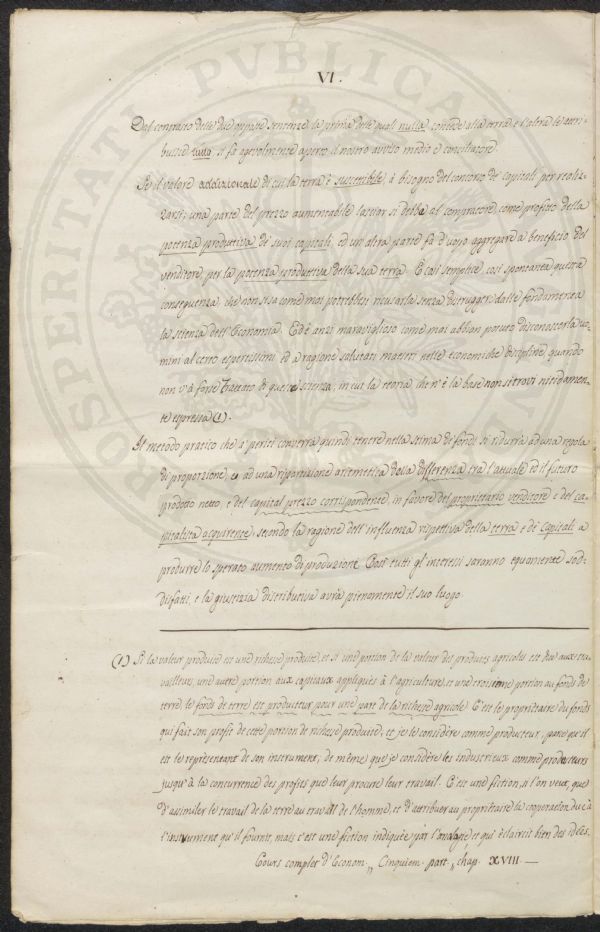 VI.
Dal contrasto delle due opposte sentenze la prima delle quali nulla concede alla terra e l'altra le attri-
buisce tutto, si fa agevolmente aperto il nostro avviso medio e conciliatore.
Se il valore addizionale di cui la terra è suscettibile à bisogno del concorso de' capitali per realiz-
zarsi; una parte del prezzo aumentabile lasciar si debbe al compratore, come profitto della
potenza produttiva de' suoi capitali, ed un'altra parte fà d'uopo aggregare a beneficio del
venditore per la potenza produttiva della sua terra. È così semplice, così spontanea questa
conseguenza, che non si sa come mai potrebbesi ricusarla senza distruggere dalle fondamenta
la scienza dell'Economia. Ed è anzi maraviglioso come mai abbian potuto disconoscerla uo-
mini al certo espertissimi ed a ragione salutati maestri nelle economiche discipline, quando
non v'à forse trattato di questa scienza, in cui la teoria che n'è la base non si trovi nitidamen-
te espressa (1).
Il metodo pratico che a' periti converrà quindi tenere nella stima de' fondi si ridurrà ad una regola
di proporzione, o ad una ripartizione aritmetica dalla differenza tra l'attuale ed il futuro
prodotto netto, e del capital prezzo corrispondente, in favore del proprietario venditore e del ca-
pitalista acquirente, secondo la ragione dell'influenza rispettiva della terra e de' capitali a
produrre lo sperato aumento di produzione. Così tutti gl'interessi saranno equamente sod-
disfatti, e la giustizia distributiva avrà pienamente il suo luogo.
(1) Si la valeur produite est une richesse produite, et si une portion de la valeur des produits agricoles est due aux tra-
vailleurs, une autre portion aux capitaux appliqués à l'agriculture, et une troisième portion au fonds de
terre, le fonds de terre est producteur pour une part de la richesse agricole. C'est le propriétaire du fonds
qui fait son profit de cette portion de richesse produite, et je le considère comme producteur, parce qu'il
est le représentant de son instrument; de même que je considère les industrieux comme producteurs
jusqu'à la concurrence des profits que leur procure leur travail. C'est une fiction, si l'on veut, que
d'assimiler le travail de la terre au travail de l'homme, et d'attribuer au propriétaire la coopération due à
l'instrument qu'il fournit, mais c'est une fiction indiquée par l'analogie, et qui éclaircit bien des idées.
Cours complet d'Econom. „ Cinquiem. part. „ chap. XVIII. —
PROSPERITATI PUBLICAE